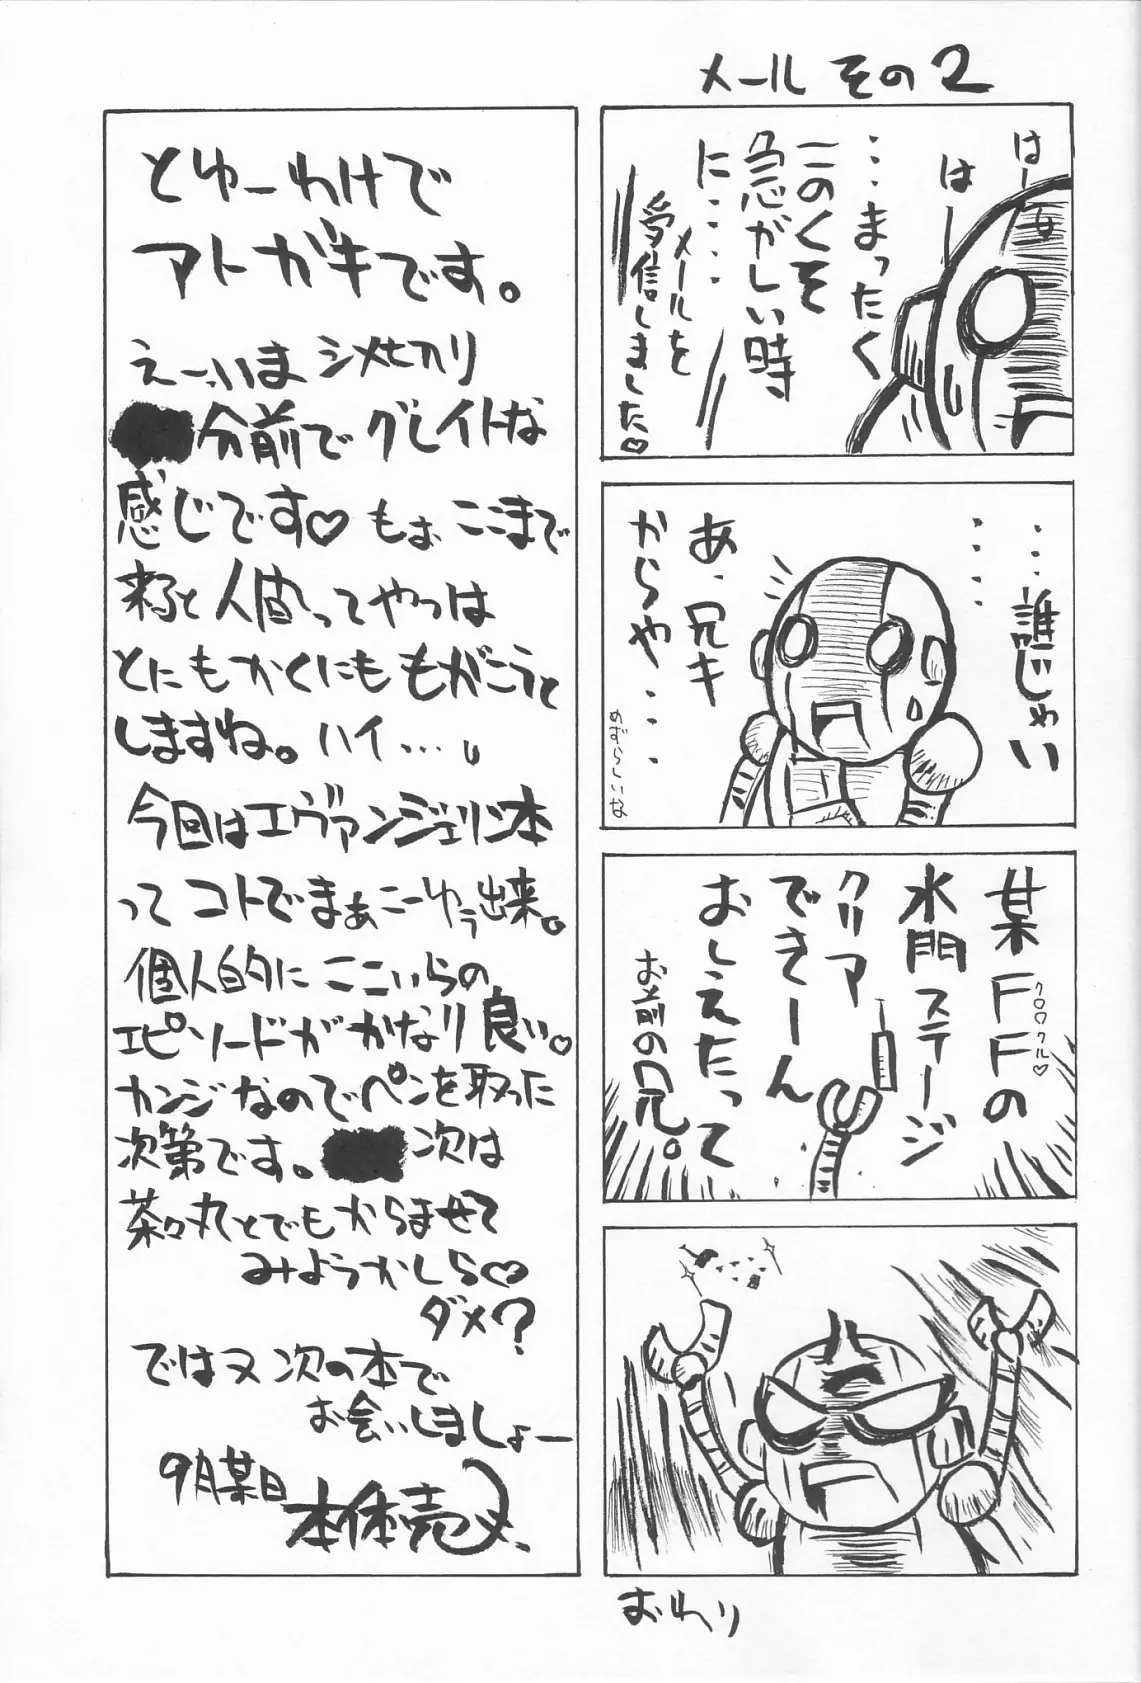 メール その2
はー
は
…まったく
このくそ
急がしい時
に……
メールを
受信しました♡
……誰じゃい
……
あ、兄キ
からや…
めずらしいな
某FFの
クロロクル♡
水門ステージ
クリア
できーん
おしえたって
お前の兄。
おわり
とゆーわけで
アトガキです。
えー、いま シメ切り
分前で グレイトな
感じです♡ もぉ ここまで
来ると 人間ってやつは
とにもかくにも もがこうと
しますね。ハイ…。
今回はエヴァンジェリン本
って コトでまぁこーゆう出来。
個人的に ここいらの
エピソードが かなり 良い♡
カンジなのでペンを取った
次第です。 次は
茶々丸とでもからませて
みようかしら♡
ダメ?
ではヌ 次の本で
お会いしましょー
9月某日
本体売